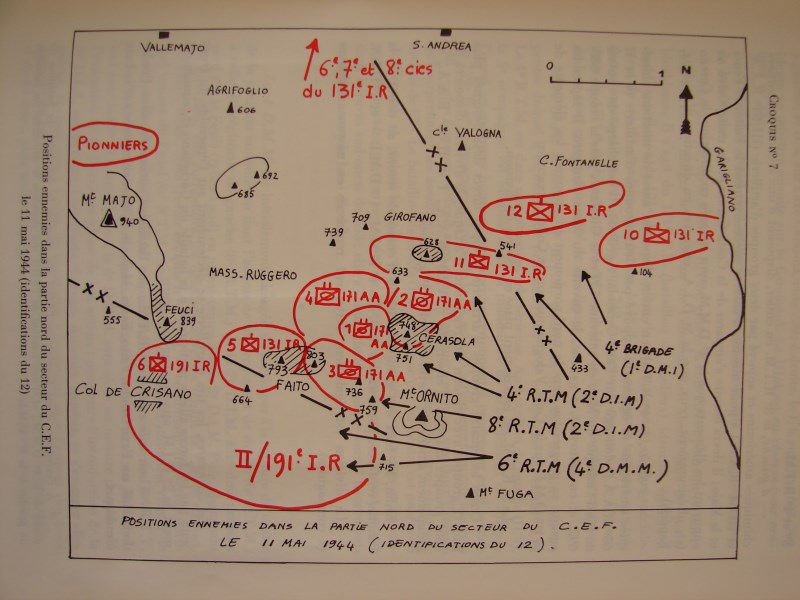 VALLEMAJO
S. ANDREA
6e, 7e et 8e cies
du 131e I.R
0 1
N
CROQUIS No 7
AGRIFOGLIO
606
PIONNIERS
cle VALOGNA
C. FONTANELLE
GARIGLIANO
692
685
Mt MAJO
940
12 131 I.R
709
GIROFANO
739
628
541
10 131e IR
11 131 I.R
104
MASS. RUGGERO
633
4 171 AA
2 171 AA
555
FEUCI
839
1 171
AA
748
CERASOLA
751
4e BRIGADE
(1e D.M.I)
433
5 131 IR
6 191 IR
793
803
3 171 AA
736
FAITO
COL DE CRISANO
664
759
Mt ORNITO
4e R.T.M (2e D.I.M)
8e R.T.M (2e D.I.M)
II/191e I.R
715
6e R.T.M (4e D.M.M.)
Mt FUGA
POSITIONS ENNEMIES DANS LA PARTIE NORD DU SECTEUR DU C.E.F.
LE 11 MAI 1944 (IDENTIFICATIONS DU 12).
Positions ennemies dans la partie nord du secteur du C.E.F.
le 11 mai 1944 (identifications du 12)